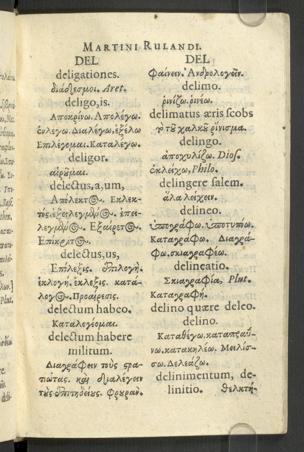 MARTINI RULANDI.
DEL
deligationes.
διαδεσμοι. Aret.
deligo, is.
Αποκρίνω. Απολέγω.
Διαλέγω, ἐξελῶ
Επιλέγομαι. Καταλέγω.
deligor.
αἱροῦμαι.
delectus, a, um,
Απόλεκτος. Εκλεκ-
Εξαίρετος.
Επίκριτος.
delectus, us,
Επίλεξις. ἐπιλογή.
ἐκλογή. ἔκλεξις. κατά-
λογος. Προαίρεσις.
delectum habeo.
Καταλέγομαι.
delectum habere
militum.
Διαγράφειν τοὺς στρα-
τιώτας. καὶ διαλέγειν
τοὺς ἐπιτηδείους.
DEL
φαίνειν. Ανδρολογεῖν.
delimo.
ῥινίζω. ῥινέω.
delimatus æris scobs
τοῦ χαλκοῦ ῥίνισμα.
delingo.
ἀποχυλίζω. Diosc.
ἐκλείχω, Philo.
delingere salem.
ἅλα λείχειν.
delineo.
ὑπογράφω. ὑποτυπόω.
Καταγράφω. Διαγρά-
φω. σκιαγραφέω.
delineatio.
Σκιαγραφία. Plut.
Καταγραφή.
delino quære deleo.
delino.
Καταθέλγω, καταπραΰ-
νω. κατακηλέω. Μειλίσ-
σω. Δελεάζω.
delinimentum, de-
linitio. θελκτή-